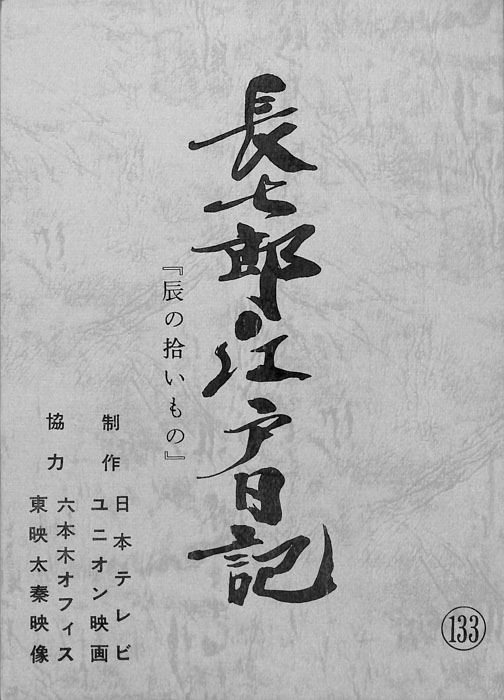 長七郎江戸日記
『辰の拾いもの』
制作 日本テレビ
ユニオン映画
協力 六本木オフィス
東映太秦映像
133